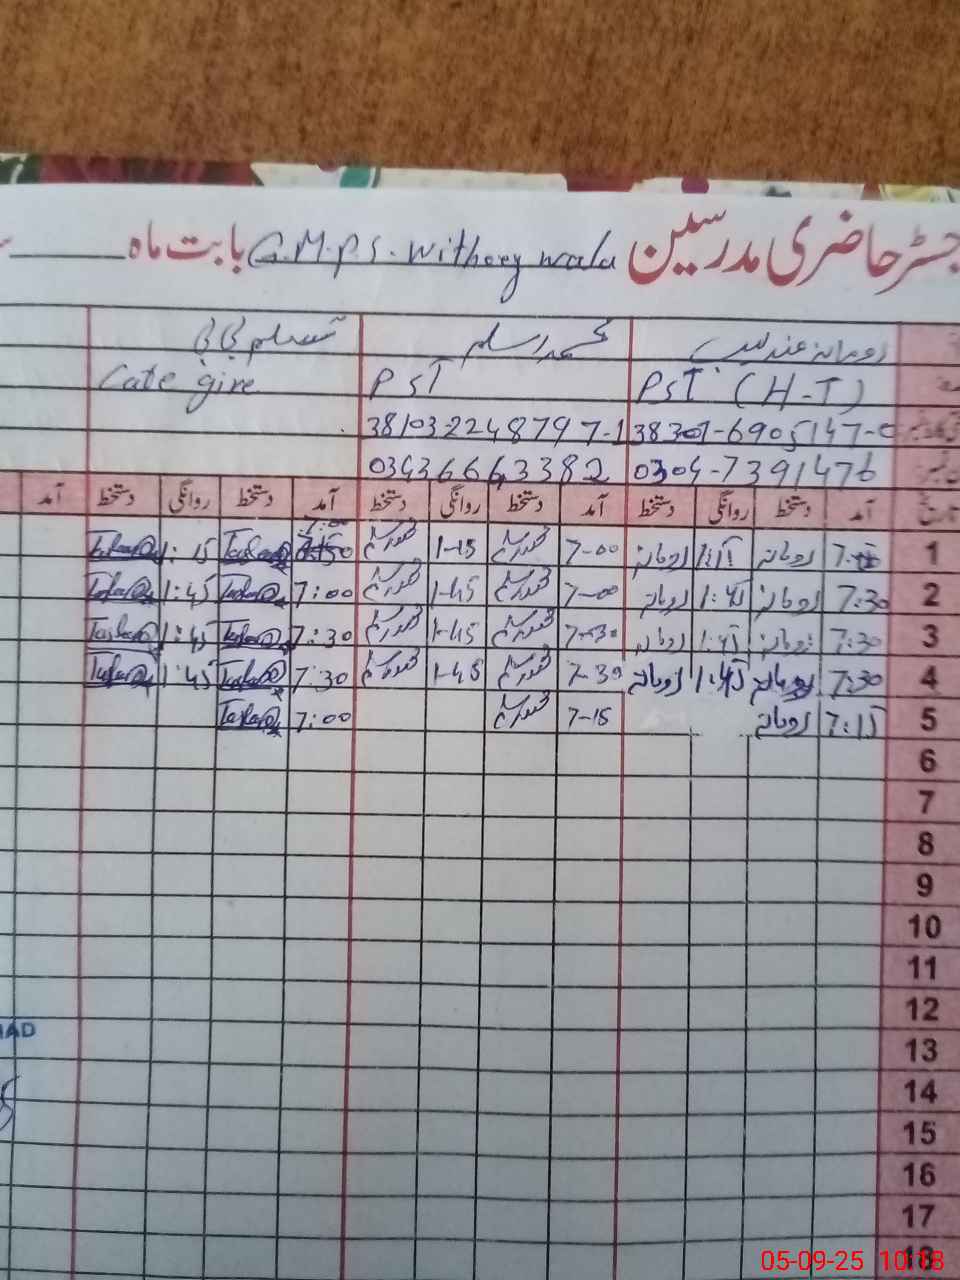 جسٹر حاضری مدرسین G.M.P.S. Withoey wala بابت ماہ
رومانہ عندلیب محمد اسلم تسلیم بی بی
PST (H-T) PST Cate give
38301-6905147-0 38103-2248797-1
0304-7391476 03436663382
تاریخ آمد دستخط روانگی دستخط آمد دستخط روانگی دستخط آمد دستخط روانگی دستخط آمد
1 رومانہ رومانہ 7-00 محمد اسلم 1-15 محمد اسلم 1:15
2 7:30 رومانہ 1:45 رومانہ 7-00 محمد اسلم 1-45 محمد اسلم 7:00 1:45
3 7:30 رومانہ 1:45 رومانہ 7-30 محمد اسلم 1-45 محمد اسلم 7:30 1:45
4 7:30 رومانہ 1:45 رومانہ 7-30 محمد اسلم 1-45 محمد اسلم 7:30 1:45
5 7:15 رومانہ 7-15 محمد اسلم 7:00
6
7
8
9
10
11
12
13
14
15
16
17
18
05-09-25 10:18